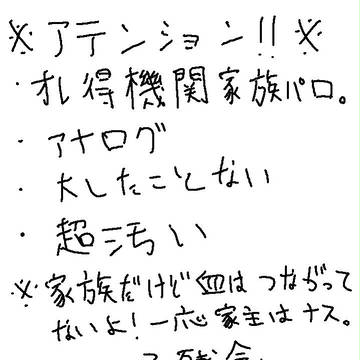 ※アテンション!!※
・オレ得機関家族パロ。
・アナログ
・大したことない
・超汚い
※家族だけど血はつながって
ないよ!一応家主はナス。